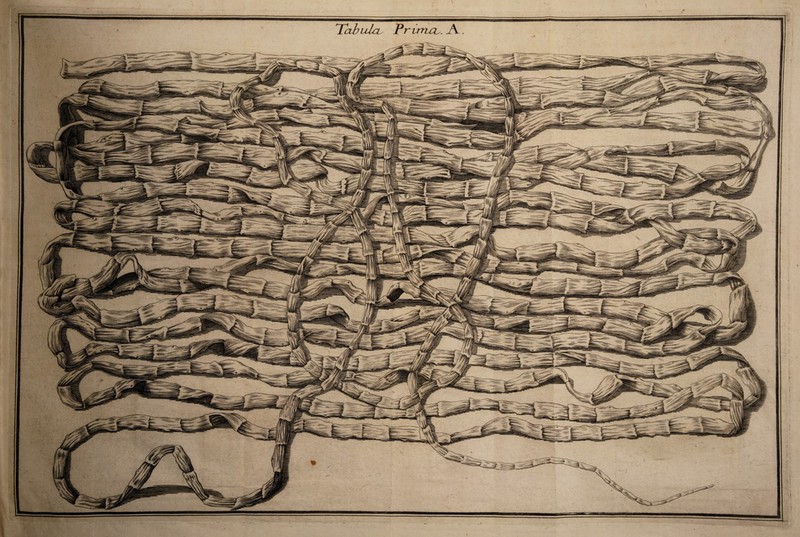 Tabula Prima. A.